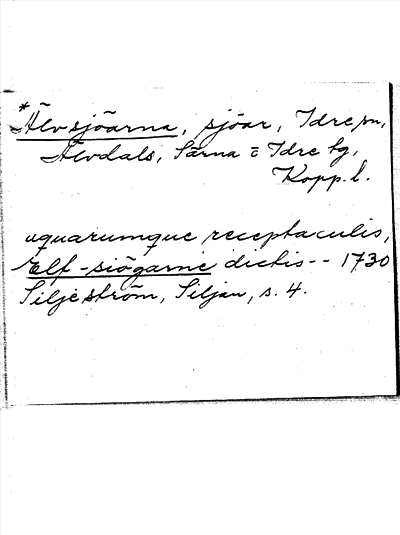 *Älvsjöarna, sjöar, Idre sn,
Älvdals, Särna o Idre tg,
Kopp. l.
aquarumque receptaculis,
Elf-siögarne dictis -- 1730
Siljeström, Siljan, s. 4.